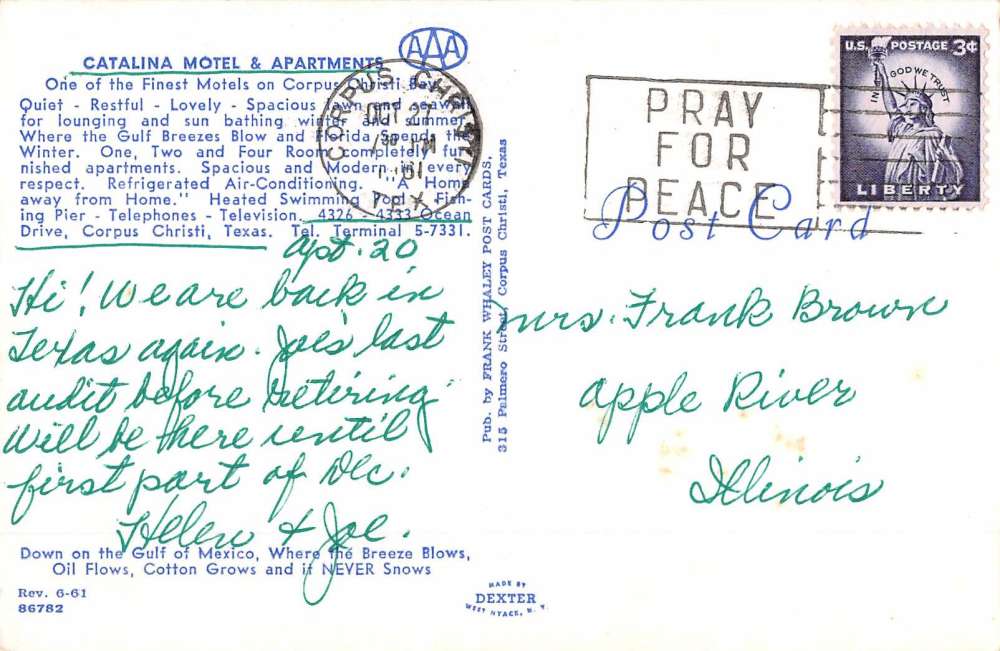 AAA
CATALINA MOTEL & APARTMENTS
One of the Finest Motels on Corpus Christi Bay.
Quiet - Restful - Lovely - Spacious lawn and seawall
for lounging and sun bathing winter and summer,
Where the Gulf Breezes Blow and Florida Spends the
Winter. One, Two and Four Room completely fur-
nished apartments. Spacious and Modern in every
respect. Refrigerated Air-Conditioning. "A Home
away from Home." Heated Swimming Pool - Fish-
ing Pier - Telephones - Television. 4326 - 4333 Ocean
Drive, Corpus Christi, Texas. Tel. Terminal 5-7331.
Apt. 20
Hi! We are back in
Texas again. Joe's last
audit before retiring
will be here until
first part of Dec.
Helen & Joe.
Down on the Gulf of Mexico, Where the Breeze Blows,
Oil Flows, Cotton Grows and it NEVER Snows
Rev. 6-61
86782
CORPUS CHRISTI
OCT
PM
TEX.
Pub. by FRANK WHALEY POST CARDS,
315 Palmero Street, Corpus Christi, Texas
PRAY
FOR
PEACE
U.S. POSTAGE 3¢
IN GOD WE TRUST
LIBERTY
Post Card
Mrs. Frank Brown
Apple River
Illinois
MADE BY
DEXTER
WEST NYACK, N. Y.